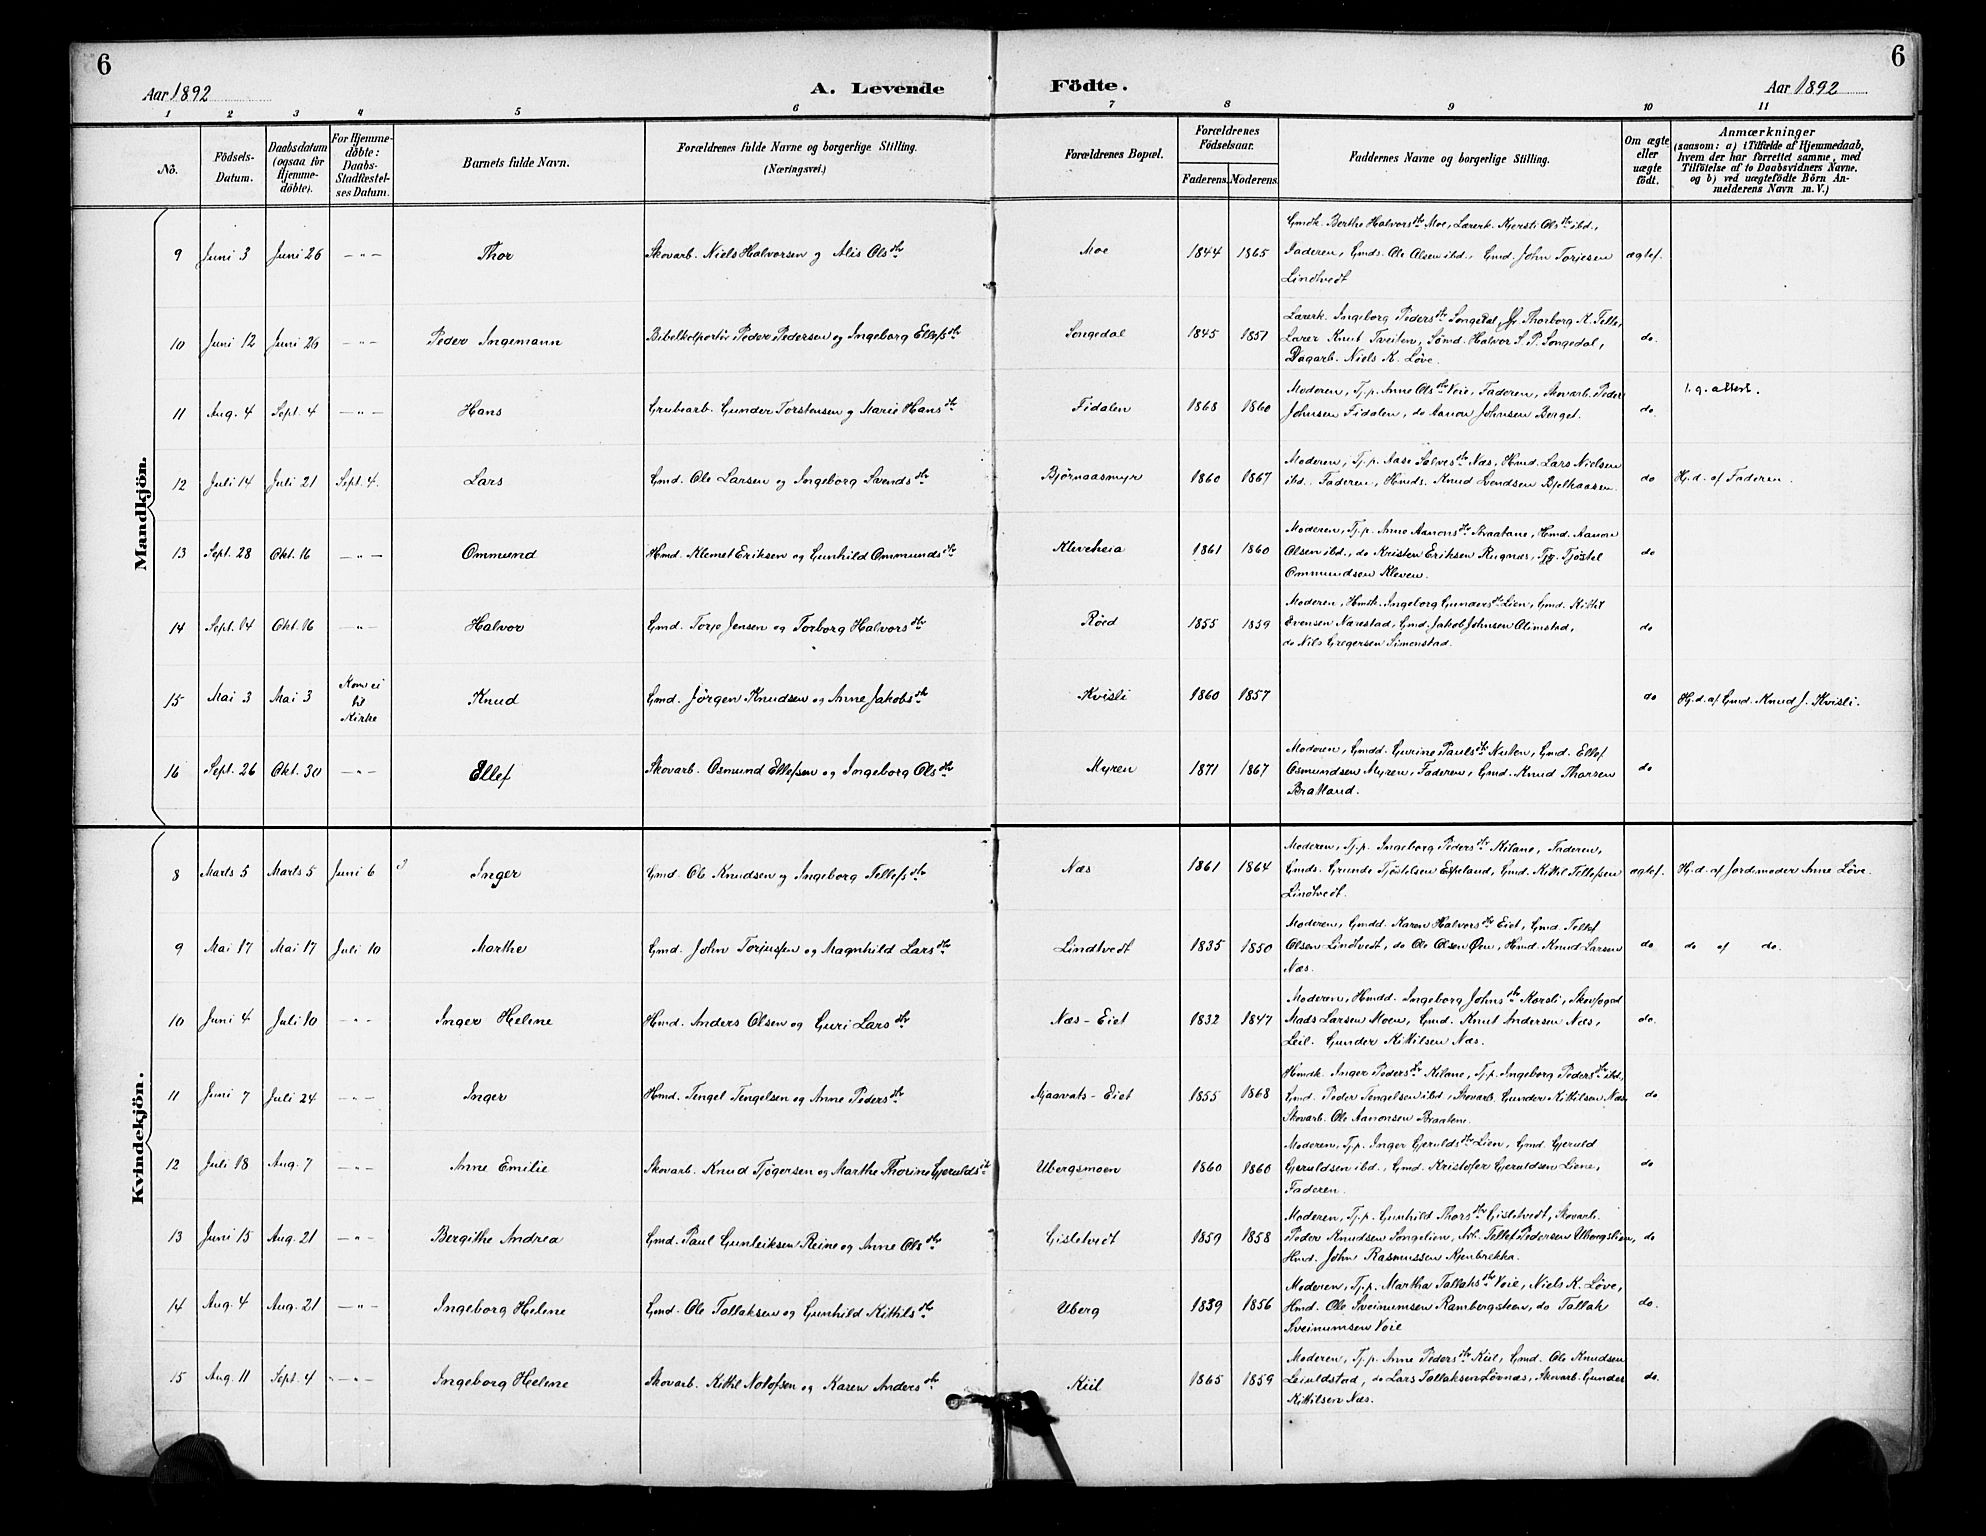 6
6
Aar 1892
A. Levende
Födte.
Aar 1892
1 2 3 4 5 6 7 8 9 10 11
No.
Födsels-Datum.
Daabsdatum (ogsaa for Hjemmedöbte).
For Hjemmedöbte: Daabs-Stadfæstelses Datum.
Barnets fulde Navn.
Forældrenes fulde Navne og borgerlige Stilling. (Næringsvei.)
Forældrenes Bopæl.
Forældrenes Födselsaar.
Faderens. Moderens.
Faddernes Navne og borgerlige Stilling.
Om ægte eller uægte födt.
Anmærkninger
(saasom: a) i Tilfælde af Hjemmedaab, hvem der har forrettet samme, med Tilföielse af to Daabsvidners Navne, og b) ved uægtefödte Börn Anmelderens Navn m. V.)
Mandkjön.
9 Juni 3 Juni 26 — " — Thor Skovarb. Niels Halvorsen og Alis Olsdtr Moe 1844 1865 Gmdk. Berthe Halvorsdtr Moe, Lærerk. Kjersti Olsdtr ibd.,
Faderen, Gmds. Ole Olsen ibd., Gmd. John Torjesen ægtef.
Lindtvedt
10 Juni 12 Juni 26 — " — Peder Ingemann Bibelkolportør Peder Pedersen og Ingeborg Ellefsdtr Songedal 1845 1851 Lærerk. Ingeborg Pedersdtr Songedal, Thorborg K. Telle,
Lærer Knut Tveiten, Sömd. Halvor S. P. Songedal, do.
Dagarb. Niels K. Löve.
11 Aug. 4 Sept. 4 — " — Hans Grubearb. Gunder Torstensen og Marie Hansdtr Fidalen 1868 1860 Moderen, Tj.p. Anne Olsdtr Voie, Faderen, Skovarb. Peder
Johnsen Fidalen, do Aanon Johnsen Berget. do l. g. attest.
12 Juli 14 Juli 21 Sept. 4. Lars Gmd. Ole Larsen og Ingeborg Svendsdtr Bjørnaasmyr 1860 1867 Moderen, Tj.p. Aase Salvesdtr Næs, Hmd. Lars Nielsen
ibd. Faderen, Hmds. Knud Svendsen do Hj.d. af Faderen.
13 Sept. 28 Okt. 16 — " — Ommund Hmd. Klemet Eriksen og Gunhild Ommundsdtr Kleveheia 1861 1860 Moderen, Tj.p. Anne Aanonsdtr Braatane, Hmd. Aanon
Olsen ibd., do Kristen Eriksen Rugnæs, Tjg. Tjöstel do
Ommundsen Kleven.
14 Sept. 14 Okt. 16 — " — Halvor Gmd. Torje Jensen og Torborg Halvorsdtr Röed 1855 1859 Moderen, Hmdk. Ingeborg Gundersdtr Lien, Gmd. Kittil
Evensen Nærestad, Gmd. Jakob Johnsen Alimstad, do
do Nils Gregersen Simonstad.
15 Mai 3 Mai 3 Kom ei til Kirke Knud Gmd. Jörgen Knudsen og Anne Jakobsdtr Kvisli 1860 1857 do Hj.d. af Gmd. Knud J. Kvisli.
16 Sept. 26 Okt. 30 — " — Ellef Skovarb. Osmund Ellefsen og Ingeborg Olsdtr Myren 1871 1867 Moderen, Gmdd. Gurine Paulsdtr Nuten, Gmd. Ellef
Osmundsen Myren, Faderen, Gmd. Knud Thorsen do
Bratland.
Kvindekjön.
8 Marts 5 Marts 5 Juni 6 Inger Gmd. Ole Knudsen og Ingeborg Tellefsdtr Næs 1861 1864 Moderen, Tj.p. Ingeborg Pedersdtr Kilane, Faderen,
Gmds. Grunde Tjöstelsen Espeland, Gmd. Kittil Tellefsen ægtef. Hj.d. af Jordemoder Anne Löve.
Lindtvedt.
9 Mai 17 Mai 17 Juli 10 Marthe Gmd. John Torjusen og Magnhild Larsdtr Lindtvedt 1835 1850 Moderen, Gmdd. Karen Halvorsdtr Eiet, Gmd. Tellef
Olsen Lindtvedt, do Ole Olsen Øen, Hmd. Knud Larsen do do af do.
Næs.
10 Juni 4 Juli 10 — " — Inger Helene Hmd. Anders Olsen og Guri Larsdtr Næs - Eiet 1832 1847 Moderen, Hmdd. Ingeborg Johnsdtr Korsli, Skovfoged
Mads Larsen Moen, Gmd. Knut Andersen Næs, do.
Leil. Gunder Kittilsen Næs.
11 Juni 7 Juli 24 — " — Inger Hmd. Tengel Tengelsen og Anne Pedersdtr Mjaavats - Eiet 1855 1868 Hmdk. Inger Pedersdtr Kilane, Tj.p. Ingeborg Pedersdtr ibd.,
Gmd. Peder Tengelsen ibd, Skovarb. Gunder Kittilsen Næs do
Skovarb. Ole Aanonsen Braatene.
12 Juli 18 Aug. 7 — " — Anne Emilie Skovarb. Knud Tjögersen og Marthe Thorine Gjeruldsdtr Ubergsmoen 1860 1860 Moderen, Tj.p. Inger Gjeruldsdtr Lien, Gmd. Gjeruld
Gjeruldsen ibd., Gmd. Kristofer Gjeruldsen Liene, do
Faderen.
13 Juni 15 Aug. 21 — " — Bergithe Andrea Gmd. Paul Gunleiksen Reine og Anne Olsdtr Gisletvedt 1859 1858 Moderen, Tj.p. Gunhild Thorsdtr Gisletvedt, Skovarb.
Peder Knudsen Songelien, Arb. Tellef Pedersen Ubergslien, do
Hmd. John Rasmussen Kjenbrekka.
14 Aug. 4 Aug. 21 — " — Ingeborg Helene Gmd. Ole Tallaksen og Gunhild Kittilsdtr Uberg 1839 1856 Moderen, Tj.p. Martha Tallaksdtr Voie, Niels K. Löve,
Hmd. Ole Sveinumsen Rambergsteen, do Tallak do.
Sveinumsen Voie
15 Aug. 11 Sept. 4 — " — Ingeborg Helene Skovarb. Kittil Notofsen og Karen Andersdtr Kiil 1865 1859 Moderen, Tj.p. Anne Pedersdtr Kiil, Gmd. Ole Knudsen
Leivldstad, do Lars Tallaksen Lövnæs, Skovarb. Gunder do.
Kittilsen Næs.